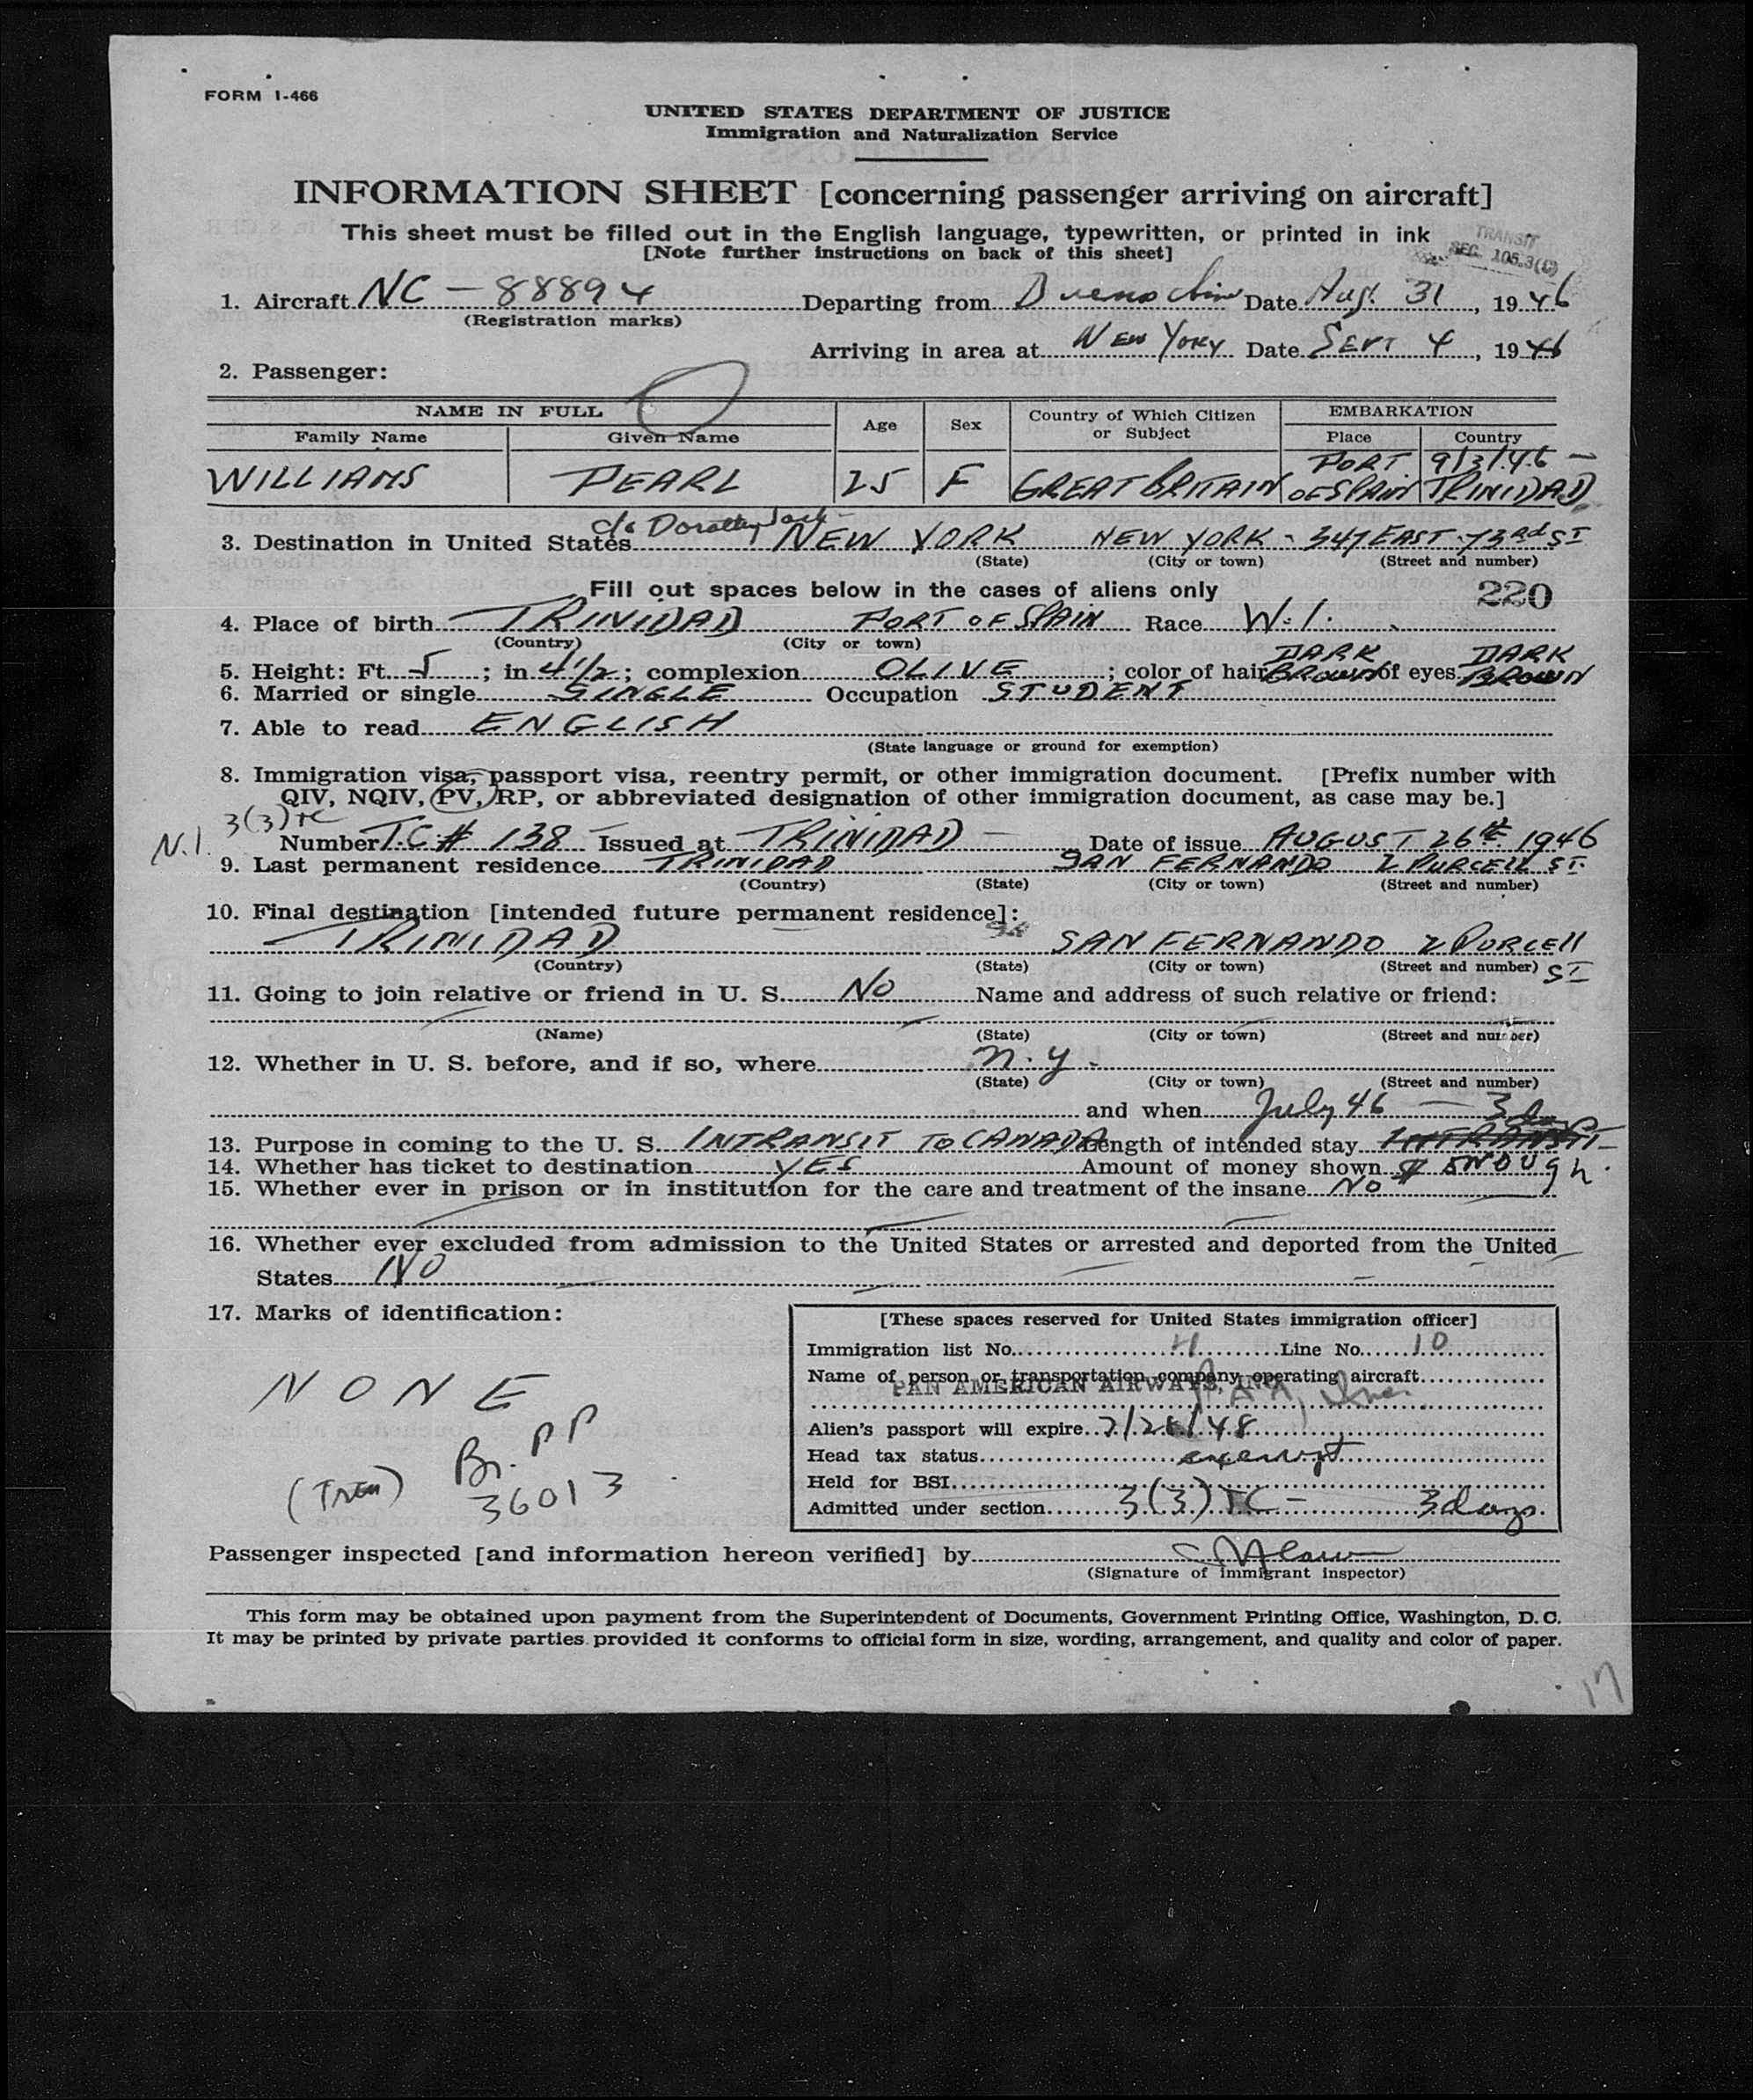 FORM I-466
UNITED STATES DEPARTMENT OF JUSTICE
Immigration and Naturalization Service
INFORMATION SHEET [concerning passenger arriving on aircraft]
This sheet must be filled out in the English language, typewritten, or printed in ink
[Note further instructions on back of this sheet]
TRANSIT
SEC. 105.3(C)
1. Aircraft NC - 88894 Departing from Date Aug. 31, 1946
(Registration marks)
Arriving in area at NEW YORK Date SEPT 4, 1946
2. Passenger:
NAME IN FULL Age Sex Country of Which Citizen or Subject EMBARKATION
Family Name Given Name Place Country
WILLIAMS PEARL 25 F GREAT BRITAIN PORT OF SPAIN 9/3/46 - TRINIDAD
c/o Dorothy
3. Destination in United States NEW YORK NEW YORK - 347 EAST 73RD ST
(State) (City or town) (Street and number)
Fill out spaces below in the cases of aliens only 220
4. Place of birth TRINIDAD PORT OF SPAIN Race W.I.
(Country) (City or town)
5. Height: Ft. 5; in 4 1/2; complexion OLIVE; color of hair DARK BROWN of eyes DARK BROWN
6. Married or single SINGLE Occupation STUDENT
7. Able to read ENGLISH
(State language or ground for exemption)
8. Immigration visa, passport visa, reentry permit, or other immigration document. [Prefix number with
QIV, NQIV, PV, RP, or abbreviated designation of other immigration document, as case may be.]
3(3) TC
N.I. Number T.C. # 138 Issued at TRINIDAD Date of issue AUGUST 26th 1946
9. Last permanent residence TRINIDAD SAN FERNANDO 2 PURCELL ST.
(Country) (State) (City or town) (Street and number)
10. Final destination [intended future permanent residence]:
TRINIDAD SAN FERNANDO 2 PURCELL ST
(Country) (State) (City or town) (Street and number)
11. Going to join relative or friend in U. S. NO Name and address of such relative or friend:
(Name) (State) (City or town) (Street and number)
12. Whether in U. S. before, and if so, where n.y.
(State) (City or town) (Street and number)
and when July 46 -
13. Purpose in coming to the U. S. INTRANSIT TO CANADA Length of intended stay INTRANSIT
14. Whether has ticket to destination YES Amount of money shown $ ENOUGH.
15. Whether ever in prison or in institution for the care and treatment of the insane NO
16. Whether ever excluded from admission to the United States or arrested and deported from the United
States NO
17. Marks of identification:
NONE
Br. PP
36013
[These spaces reserved for United States immigration officer]
Immigration list No. 4 Line No. 10
Name of person or transportation company operating aircraft
PAN AMERICAN AIRWAYS, INC.
Alien's passport will expire 7/26/48
Head tax status exempt
Held for BSI
Admitted under section 3(3) TC - 3 days.
Passenger inspected [and information hereon verified] by
(Signature of immigrant inspector)
This form may be obtained upon payment from the Superintendent of Documents, Government Printing Office, Washington, D. C.
It may be printed by private parties provided it conforms to official form in size, wording, arrangement, and quality and color of paper.
17